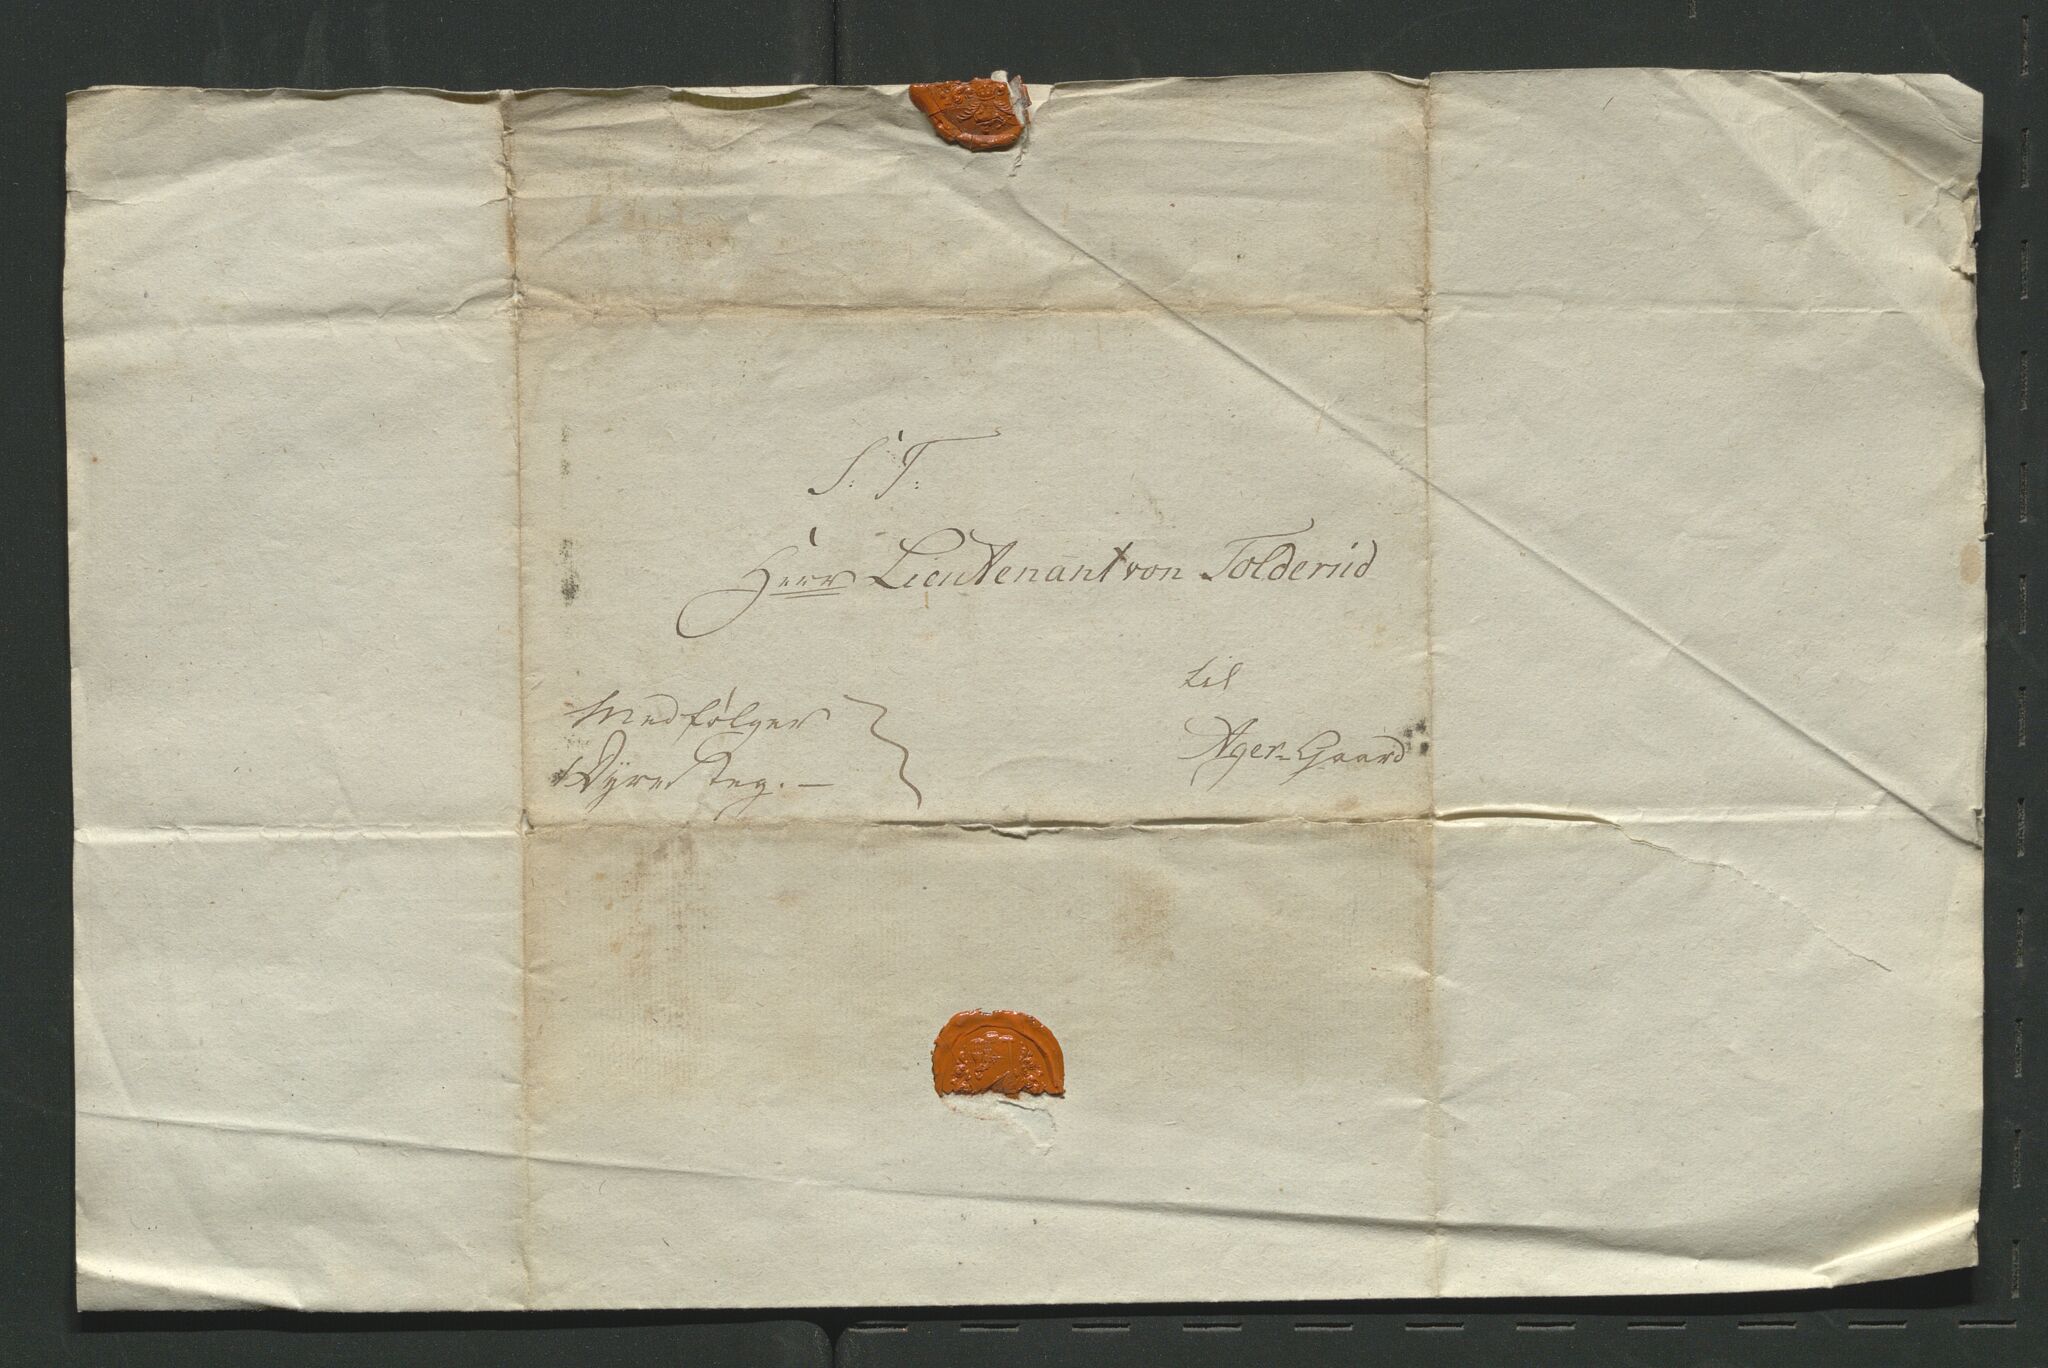 S: T:
Herr Lieutenant von Tolderûd
til
Ager-Gaard
Medfølger
1 Dyre Steg. —